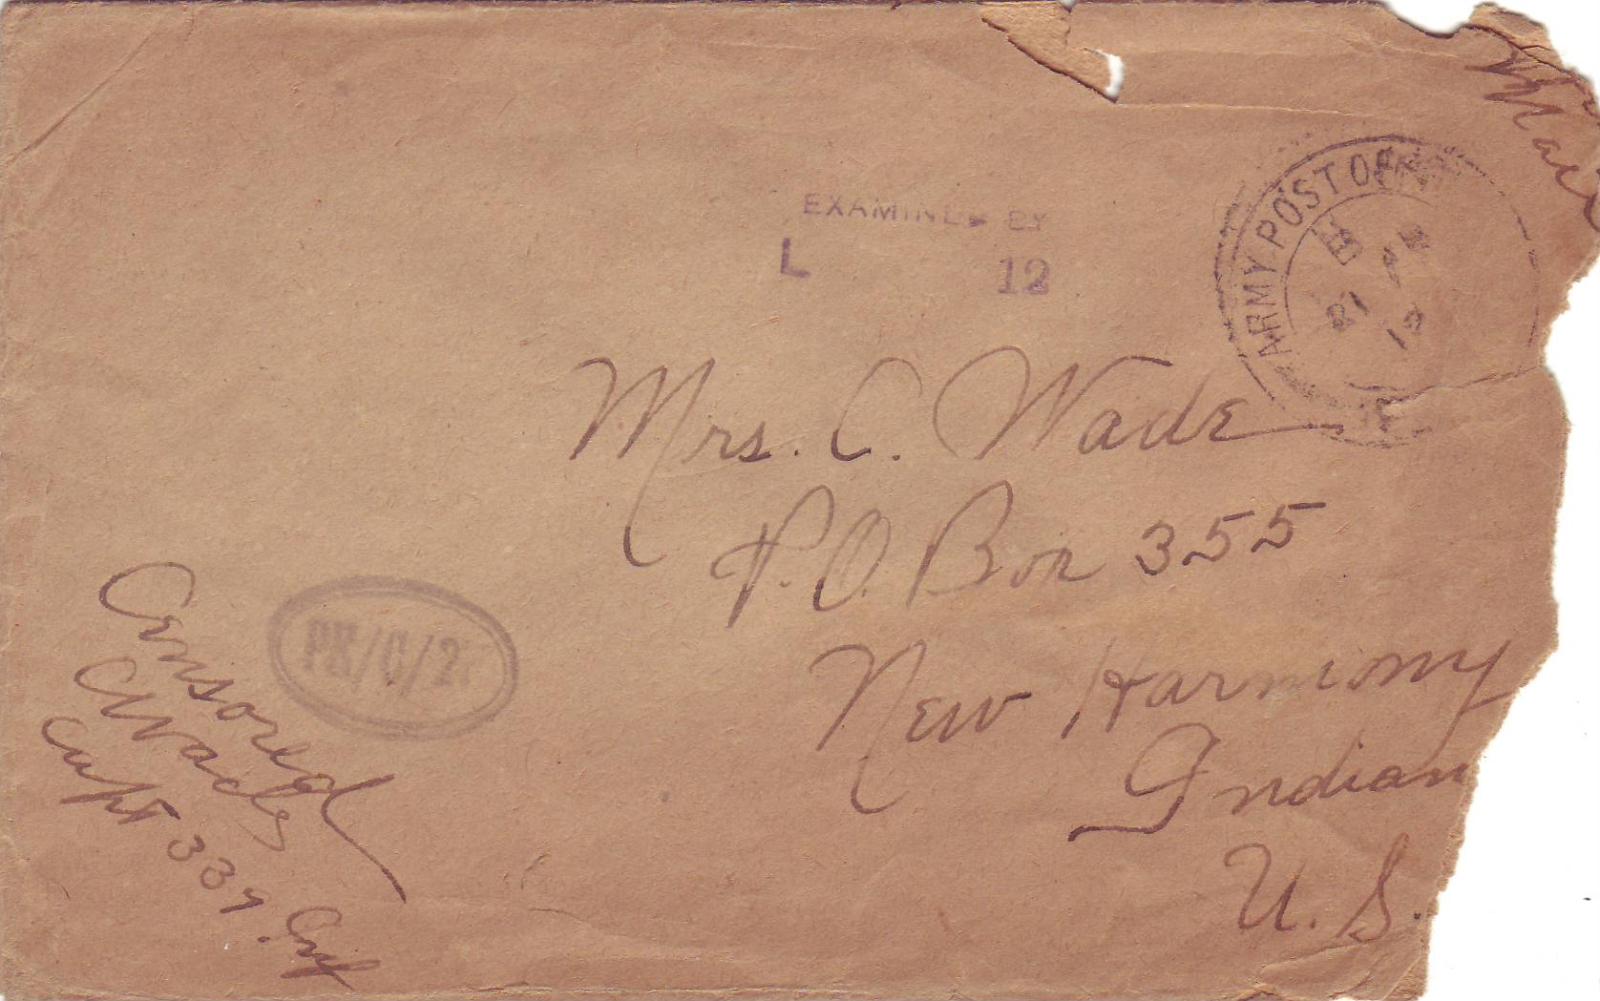 EXAMINED BY
L 12
ARMY POST OF
21
PM
Mrs. C. Wade
P.O. Box 355
New Harmony
Indian
U. S.
Censored
CWade
Capt 339. Inf